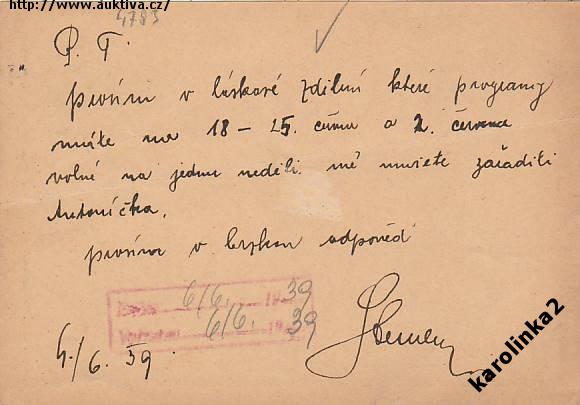 http://www.auktiva.cz/
4783
P. T.
prosím v láskavé zdělení které programy
máte na 18 – 25. a 2. července
volné na jednu neděli. mě musíte zařaditi
Antoníčka.
prosím v odpověď
6/6. 1939
6/6. 1939
4./6. 39.
karolinka2